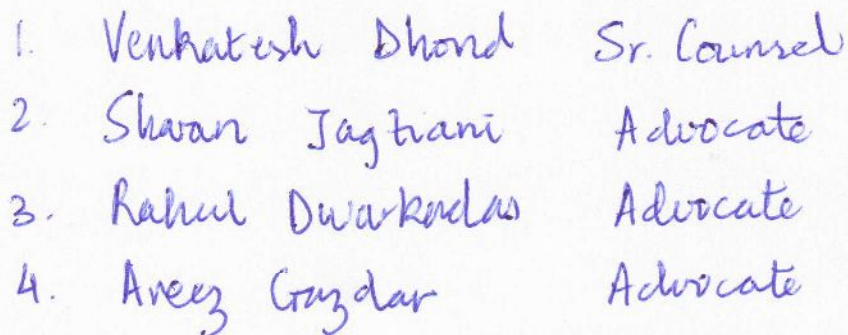 1. Venkatesh Dhond Sr. Counsel
2. Sharan Jagtiani Advocate
3. Rahul Dwarkadas Advocate
4. Areez Gazdar Advocate